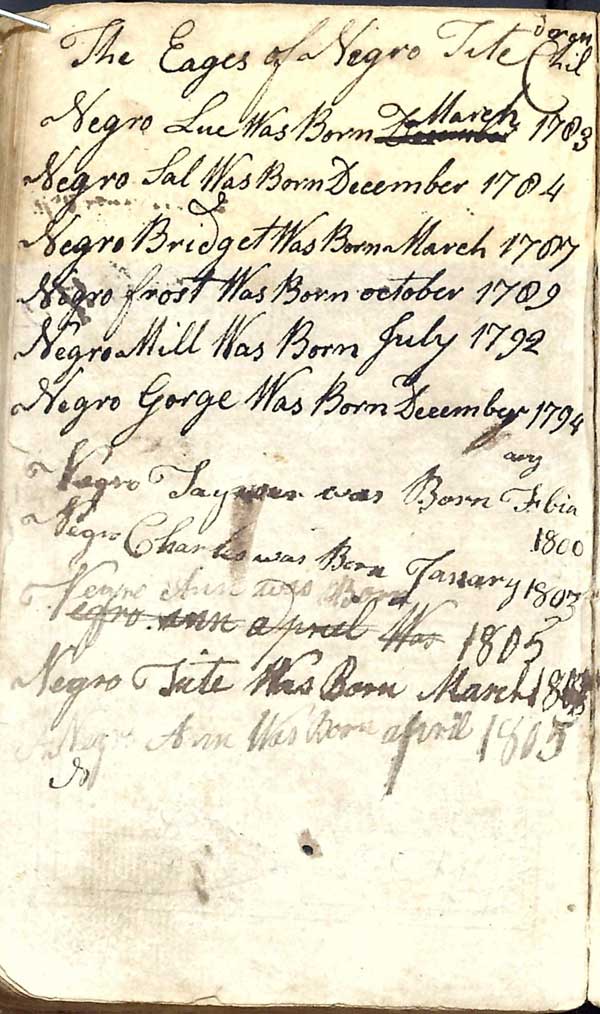 The Eages of Negro Tite Chil
deren
Negro Lue Was Born March 1783
Negro Sal Was Born December 1784
Negro Bridget Was Born March 1787
Negro frost Was Born october 1789
Negro Mill Was Born July 1792
Negro Gorge Was Born December 1794
Negro was Born Febia
ary
1800
Negro Charles was Born Janary 1803
Negro Ann was Born
Negro ann apriel Was 1805
Negro Tite Was Born March
Negro Ann Was Born april 1805
N